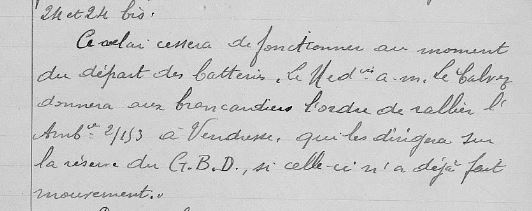 24 et 24 bis.
Ce relai cessera de fonctionner au moment
du départ des batteries, le Med.cin a.m. le Calvez
donnera aux brancardiers l'ordre de rallier l'
Amb.ce 2/153 à Vendresse, qui les dirigera sur
la réserve du G.B.D., si celle-ci n'a déjà fait
mouvement.